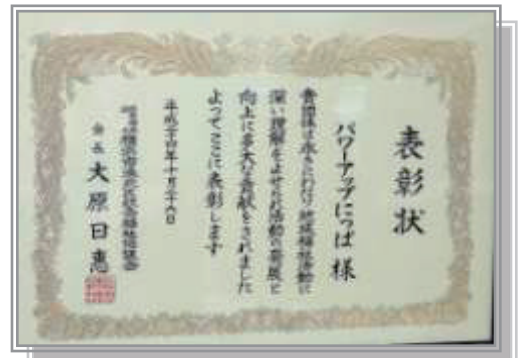 表彰状
パワーアップにっぱ様
貴団体は永きにわたり地域福祉活動に
深い理解をよせられ活動の発展と
向上に多大な貢献をされました
よってここに表彰します
平成二十四年十月二十六日
会長 大原日恵